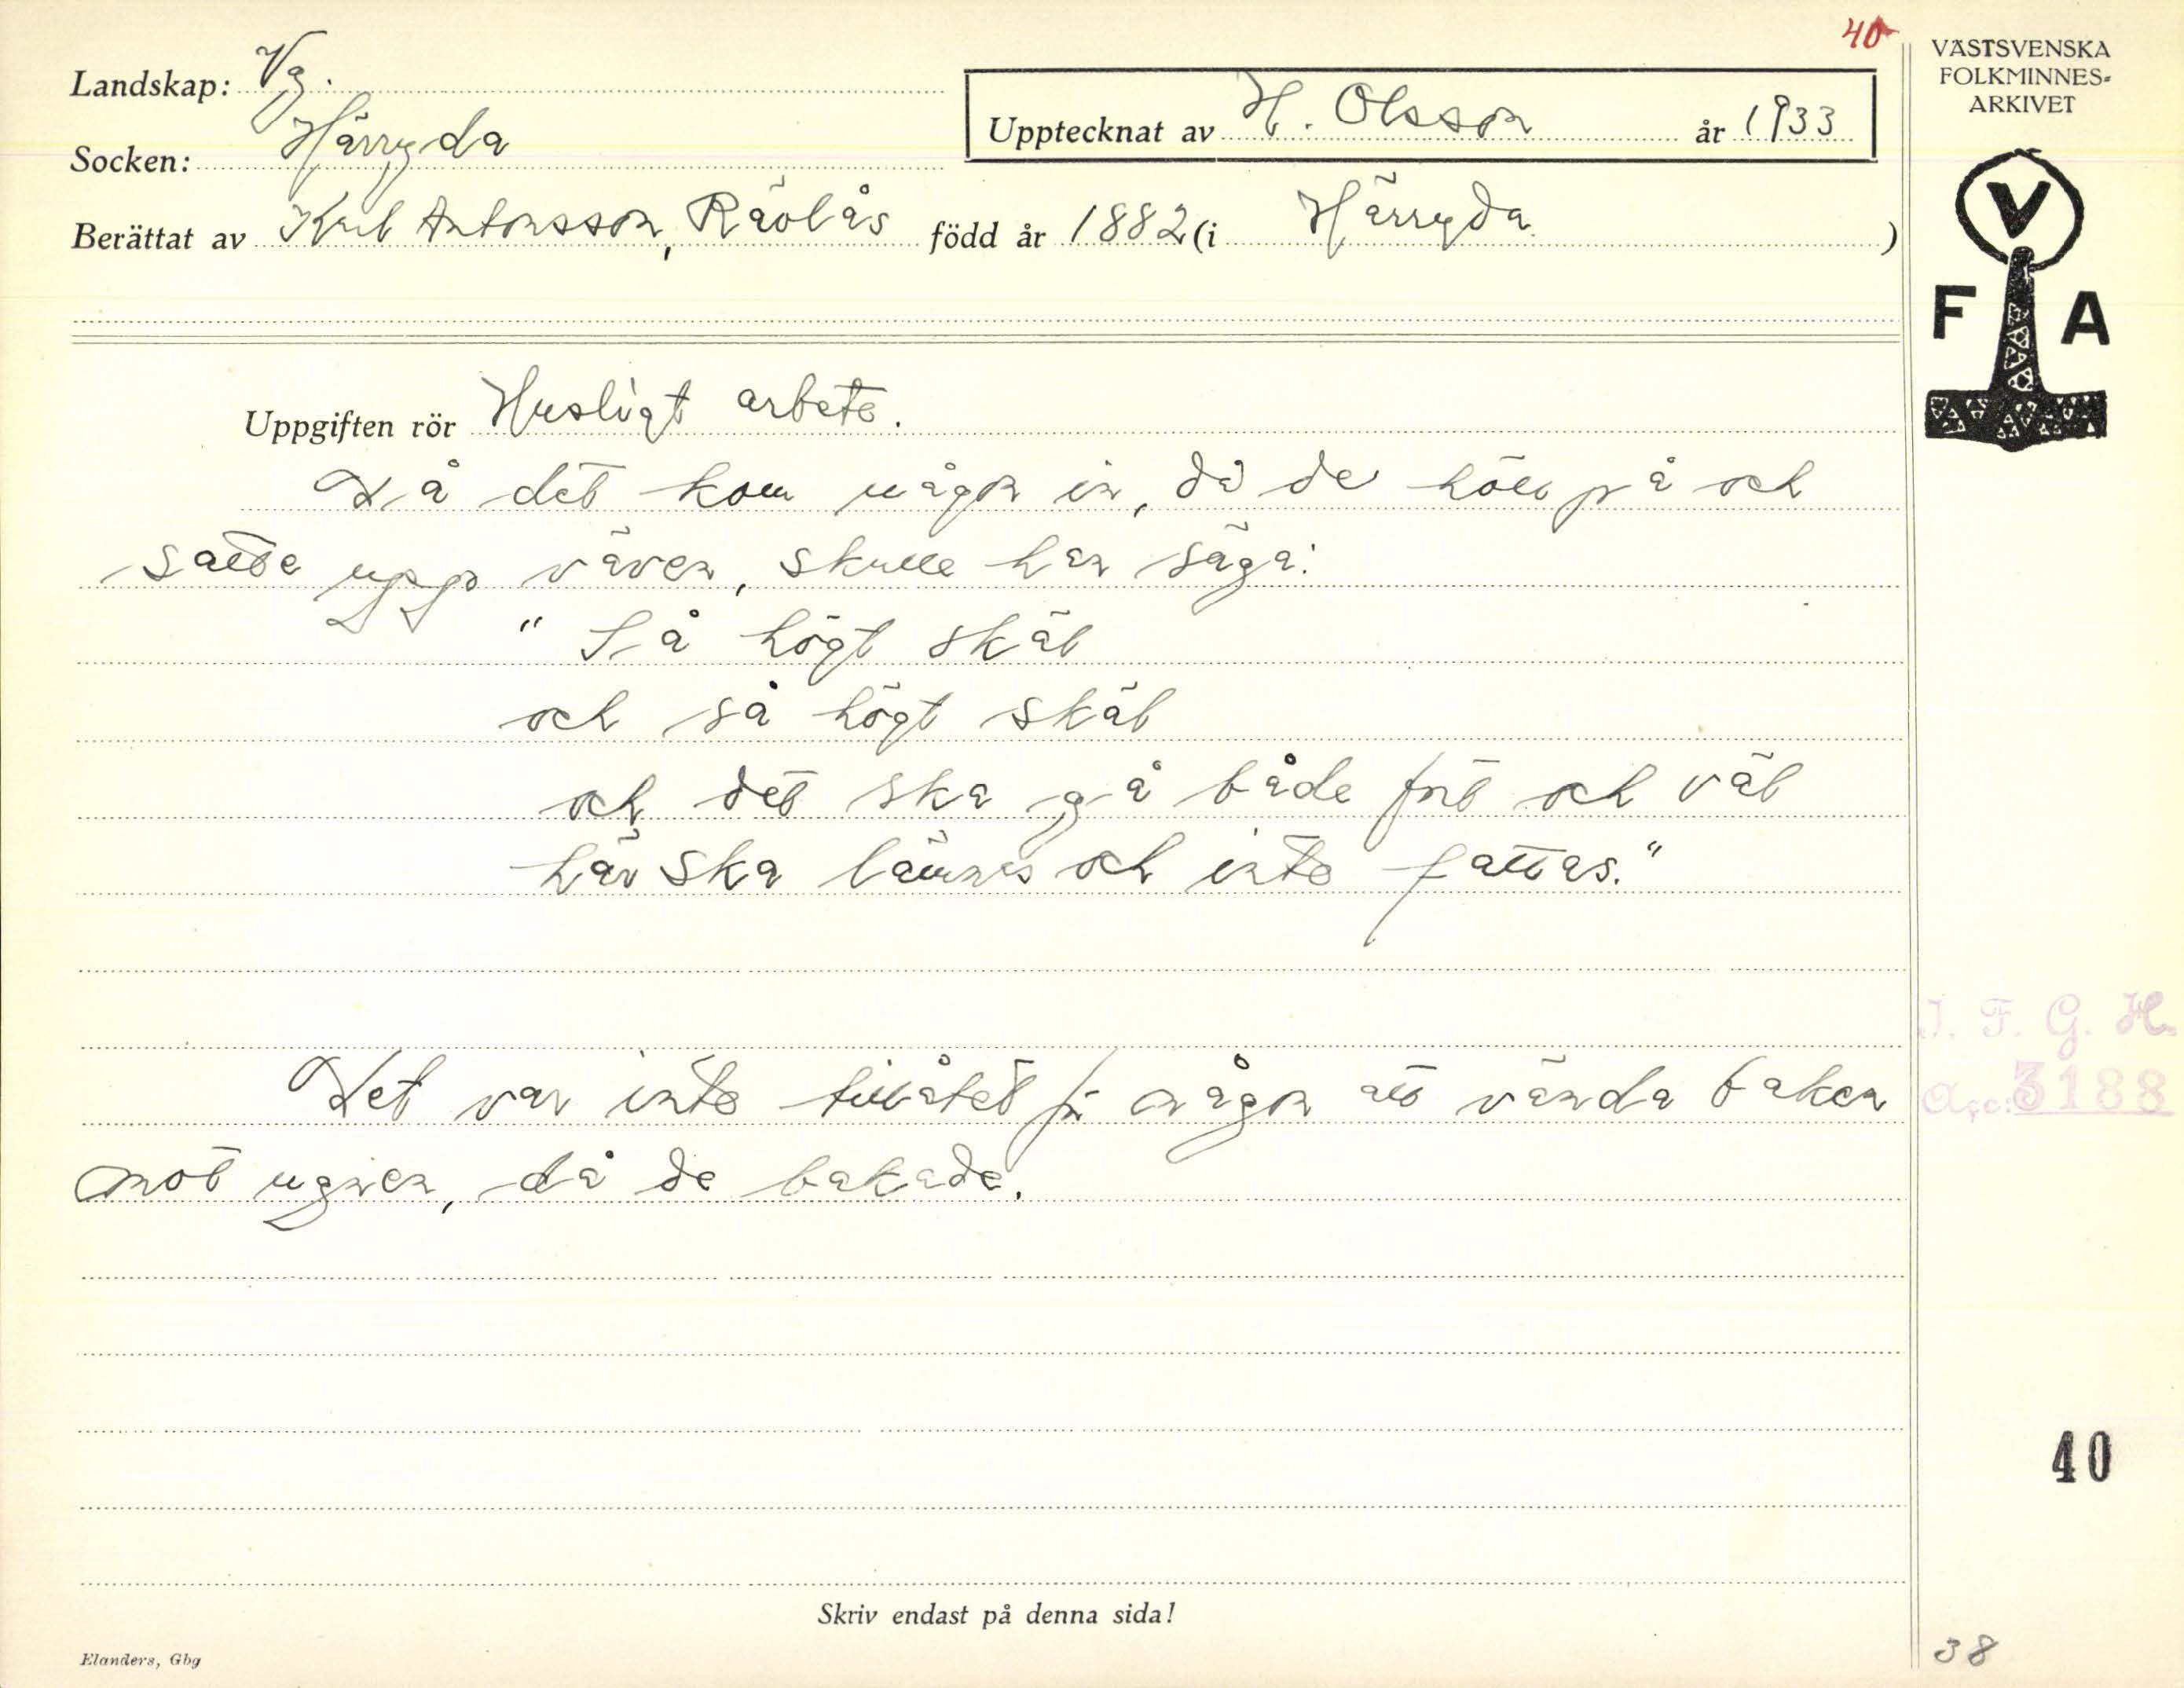 40
VÄSTSVENSKA
FOLKMINNES-
ARKIVET
Landskap: Vg.
Upptecknat av H. Olsson år 1933
Socken: Härryda
Berättat av Karl Antonsson, Rävlås född år 1882 (i Härryda )
V
F A
Uppgiften rör Husligt arbete.
Då det kom någon in, då de höll på och
satte upp väven, skulle han säga:
" Så högt skäl
och så högt skäl
och det ska gå både fort och väl
här ska lämnas och inte fattas."
Det var inte tillåtet för någon att vända baken
mot ugnen, då de bakade.
I. F. G. H.
Acc: 3188
40
Skriv endast på denna sida!
Elanders, Gbg
38